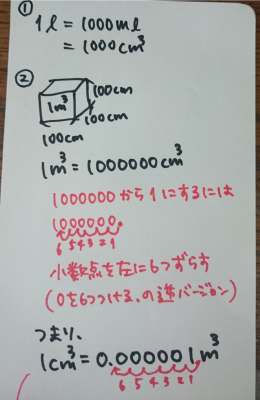 ①
1ℓ = 1000mℓ
= 1000cm³
②
1m³
100cm
100cm
100cm
1m³ = 1000000cm³
1000000から1にするには
1000000.
6 5 4 3 2 1
小数点を左に6つずらす
(0を6つつける、の逆バージョン)
つまり、
1cm³ = 0.000001m³
6 5 4 3 2 1